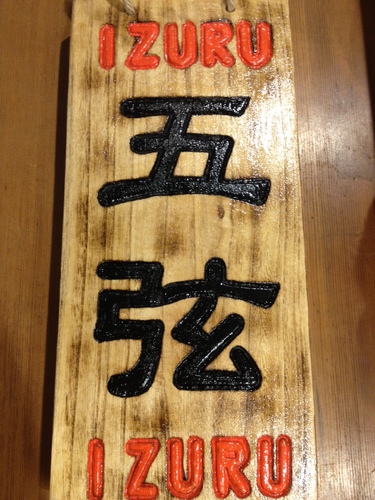 IZURU
五
弦
IZURU